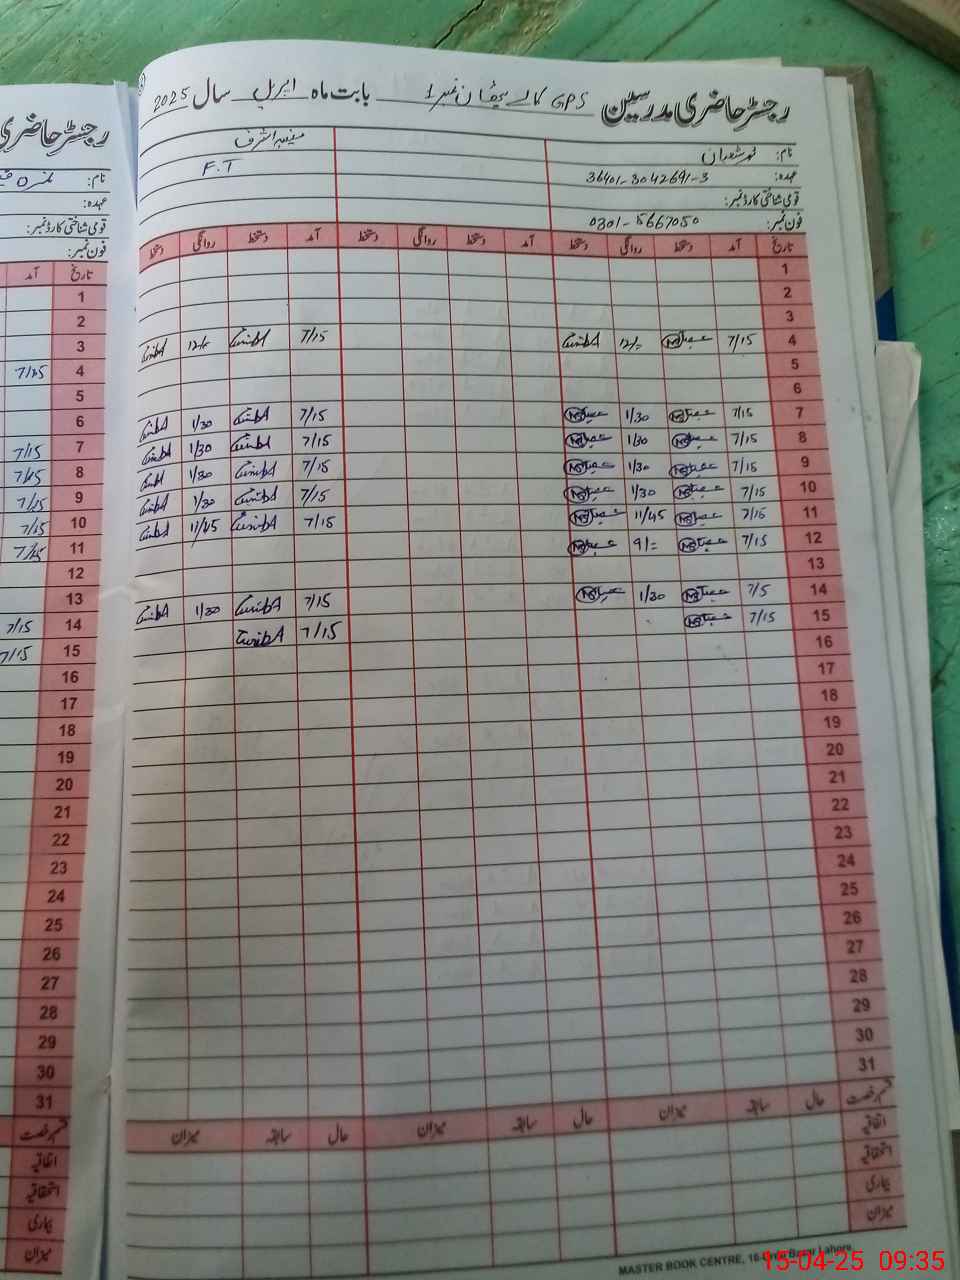 رجسٹر حاضری مدرسین GPS کالے پٹھان نمبر 1 بابت ماہ اپریل سال 2025
نام: محمد شعبان
عہدہ: 36401-3042691-3
قومی شناختی کارڈ نمبر:
فون نمبر: 0301-5667050
اشرف
F.T
تاریخ آمد دستخط روانگی دستخط آمد دستخط روانگی دستخط آمد دستخط روانگی دستخط
1
2
3
4 7/15 12/= 7/15 12/=
5
6
7 7/15 1/30 7/15 1/30
8 7/15 1/30 7/15 1/30
9 7/15 1/30 7/15 1/30
10 7/15 1/30 7/15 1/30
11 7/15 11/45 7/15 11/45
12 7/15 9/=
13
14 7/5 1/30 7/15 1/30
15 7/15 7/15
16
17
18
19
20
21
22
23
24
25
26
27
28
29
30
31
قسم رخصت حال سابقہ میزان حال سابقہ میزان حال سابقہ میزان
اتفاقیہ
استحقاقیہ
بیماری
میزان
MASTER BOOK CENTRE, Lahore
رجسٹر حاضری
نام:
عہدہ:
قومی شناختی کارڈ نمبر:
فون نمبر:
تاریخ آمد
1
2
3
4 7/15
5
6
7 7/15
8 7/15
9 7/15
10 7/15
11 7/15
12
13
14 7/15
15 7/15
16
17
18
19
20
21
22
23
24
25
26
27
28
29
30
31
قسم رخصت
اتفاقیہ
استحقاقیہ
بیماری
میزان
15-04-25 09:35